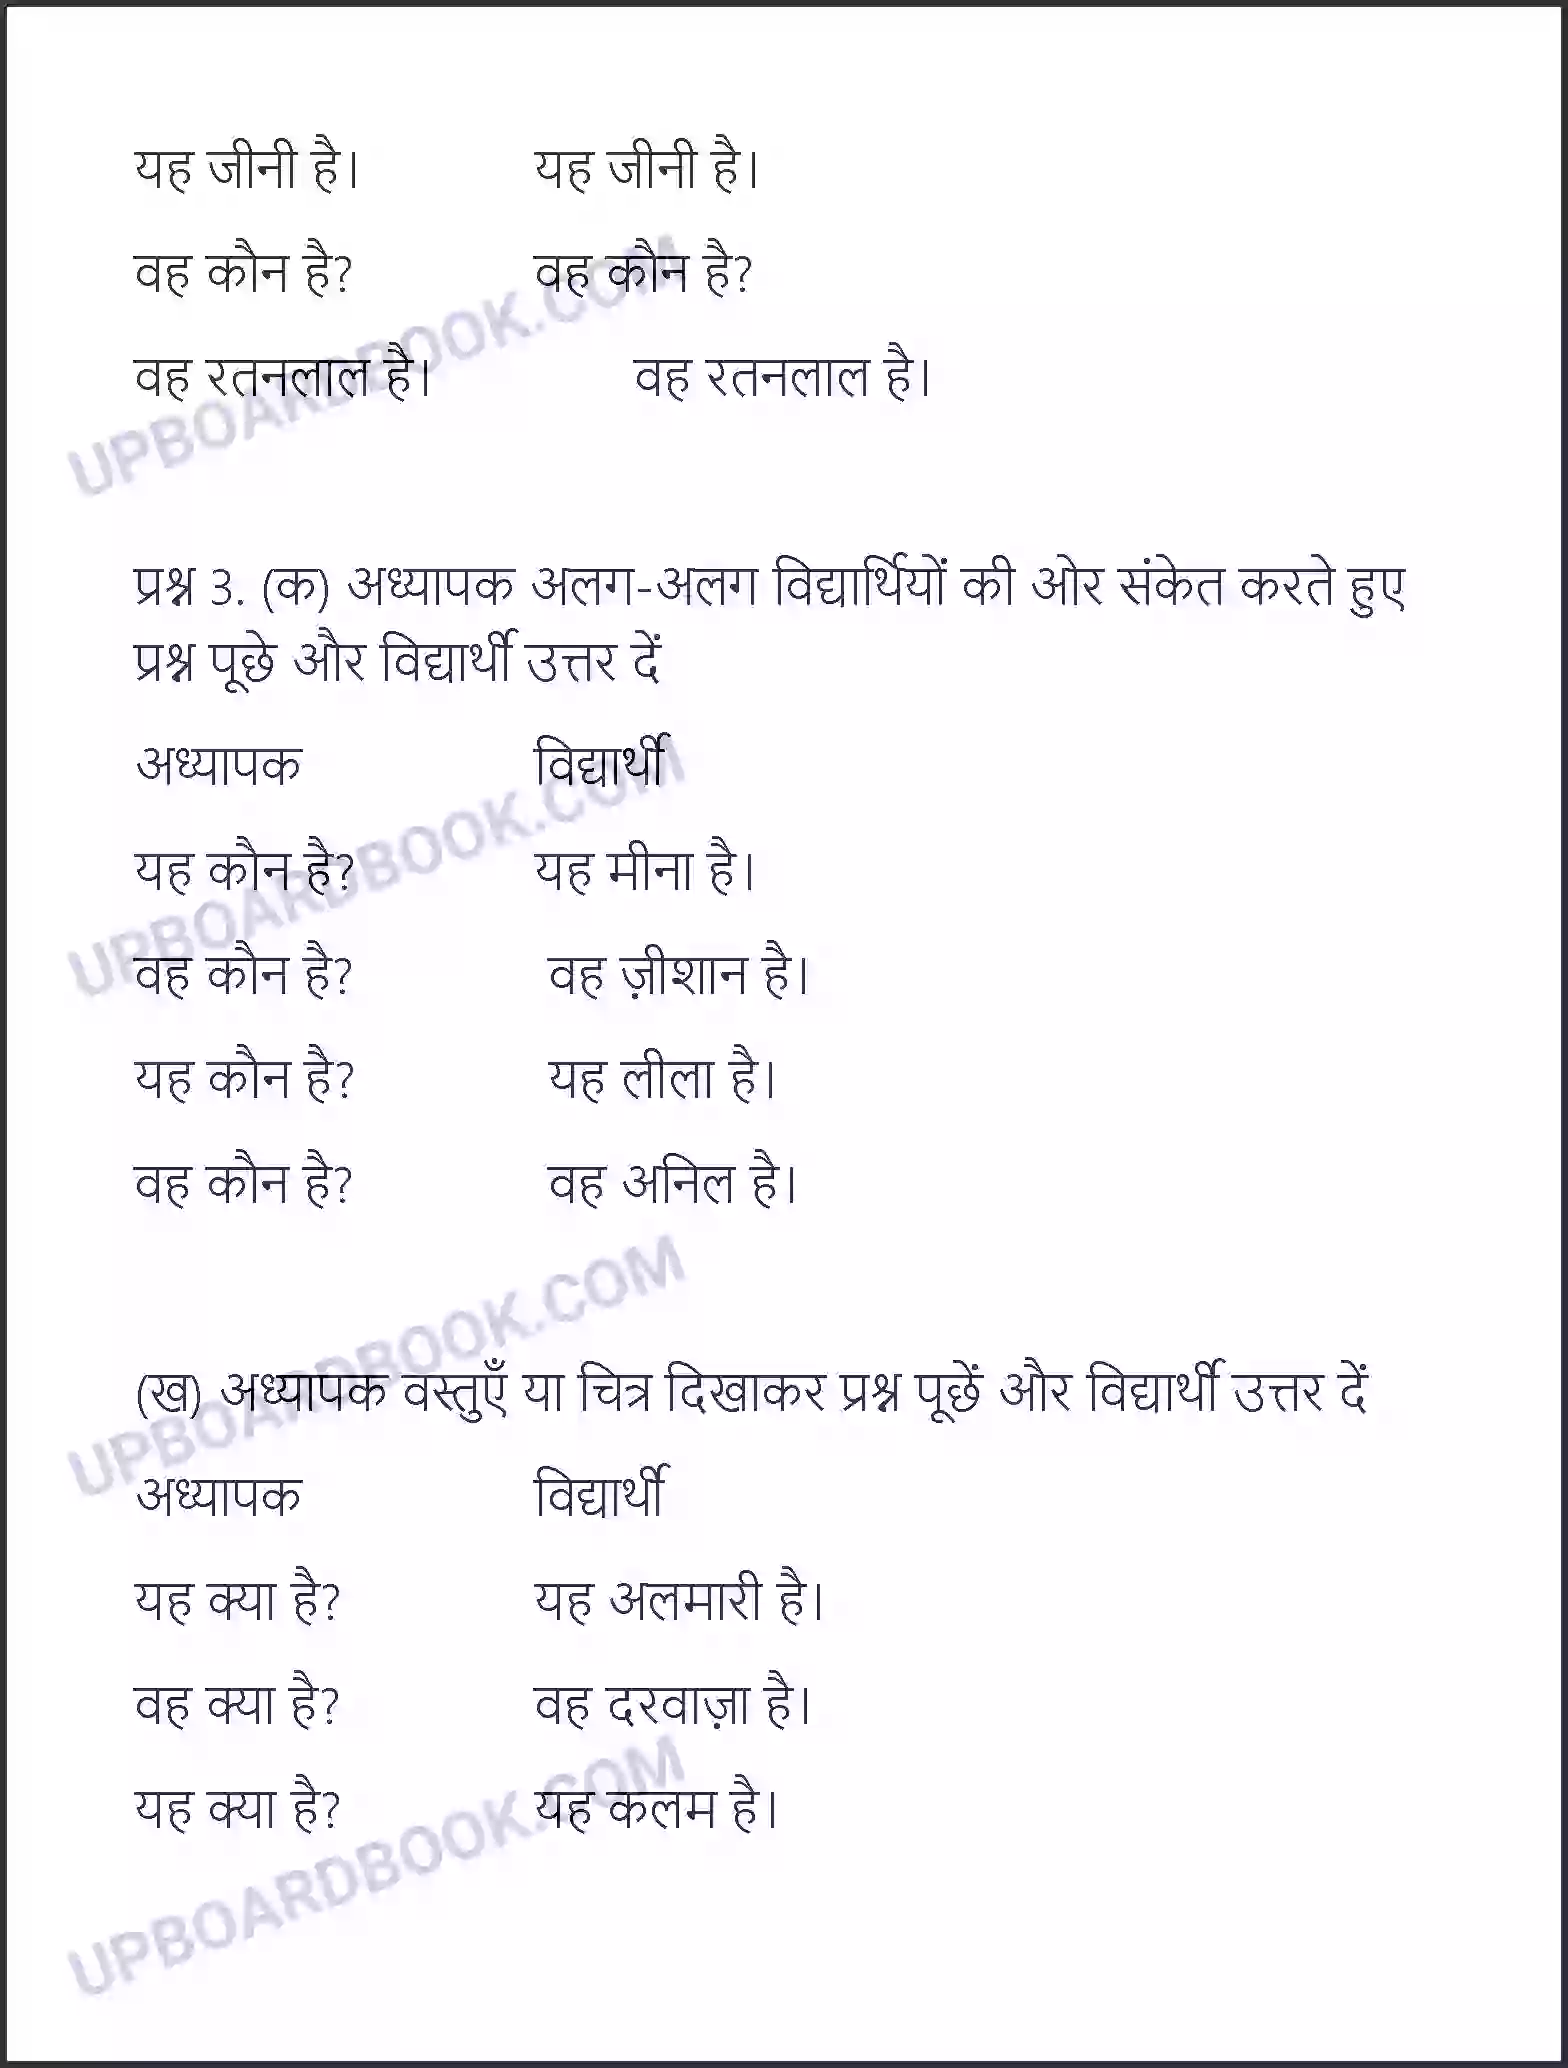 यह जीनी है। यह जीनी है।
वह कौन है? वह कौन है?
वह रतनलाल है। वह रतनलाल है।
प्रश्न 3. (क) अध्यापक अलग-अलग विद्यार्थियों की ओर संकेत करते हुए
प्रश्न पूछे और विद्यार्थी उत्तर दें
अध्यापक विद्यार्थी
यह कौन है? यह मीना है।
वह कौन है? वह ज़ीशान है।
यह कौन है? यह लीला है।
वह कौन है? वह अनिल है।
(ख) अध्यापक वस्तुएँ या चित्र दिखाकर प्रश्न पूछें और विद्यार्थी उत्तर दें
अध्यापक विद्यार्थी
यह क्या है? यह अलमारी है।
वह क्या है? वह दरवाज़ा है।
यह क्या है? यह कलम है।
UPBOARDBOOK.COM
UPBOARDBOOK.COM
UPBOARDBOOK.COM
UPBOARDBOOK.COM